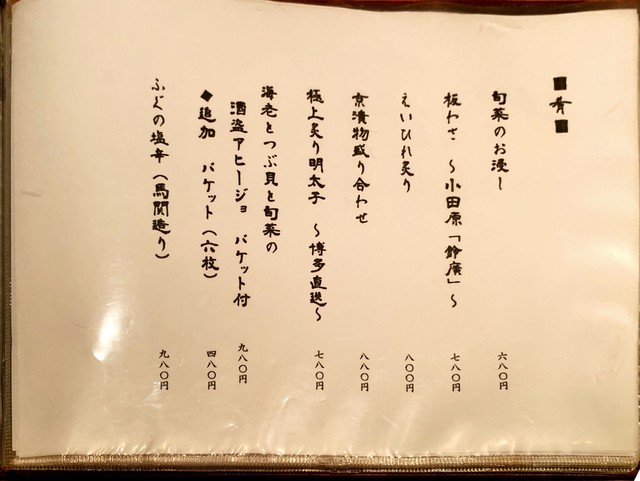 ■肴■
旬菜のお浸し 六八〇円
板わさ 〜小田原「鈴廣」〜 七八〇円
えいひれ炙り 八〇〇円
京漬物盛り合わせ 八八〇円
極上炙り明太子 〜博多直送〜 七八〇円
海老とつぶ貝と旬菜の
酒盗アヒージョ バケット付 九八〇円
◆追加 バケット(六枚) 四八〇円
ふぐの塩辛(馬関造り) 九八〇円